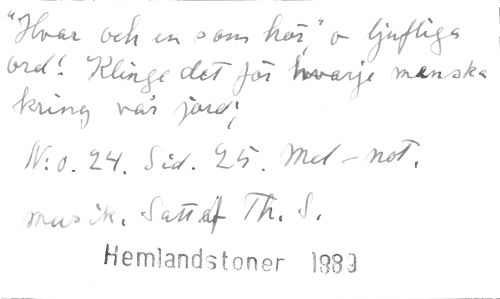 "Hvar och en som hör," o ljufliga
ord! Klinge det för hvarje menska
kring vår jord;
N:o. 24. Sid. 25. Mel-not.
musik. Satt af Th. S.
Hemlandstoner 1889